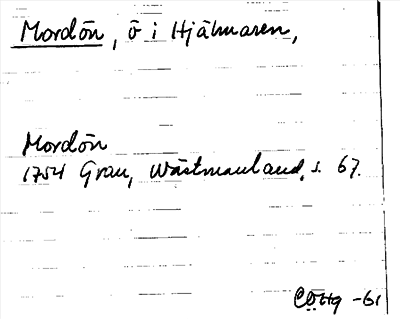 Mordön, ö i Hjälmaren,
Mordön
1754 Grau, Wästmanland, s. 67.
CÖHg -61